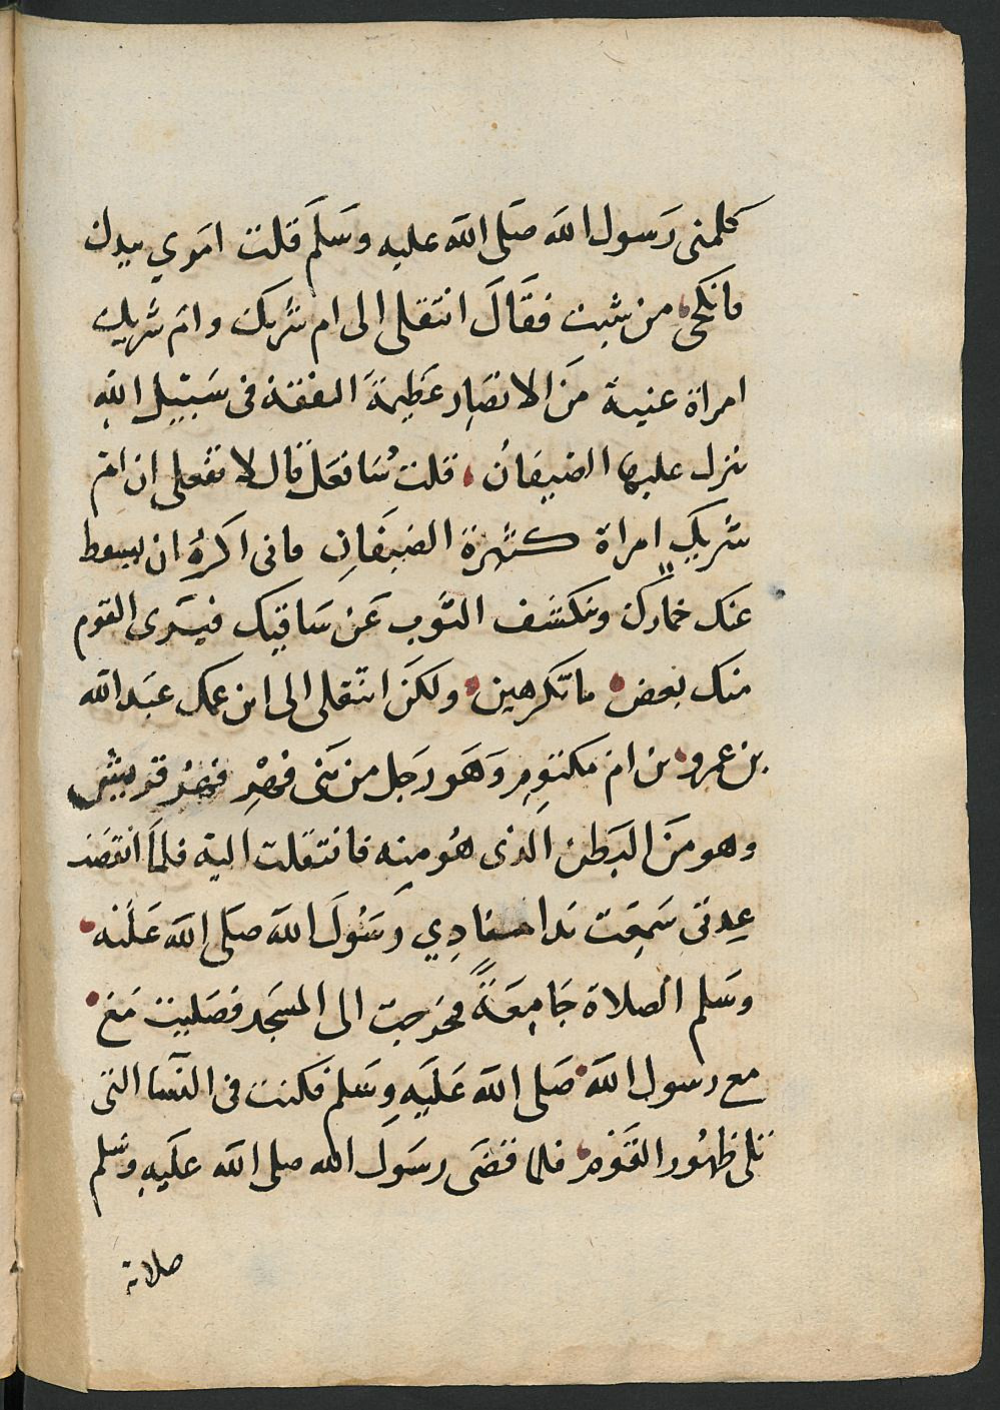 كلمني رَسول الله صَلى الله عليه وسَلمَ قلت امَري بيدك
فانكحني من شيت فقَالَ انتقلى الى ام شريك وام شريك
امراة غنية مَن الانصَارِ عَظِيمَة النفقة فى سَبيل الله
ينزل عليها الضيفان قلت سَافعَل قال لا تفعلى ان ام
شريكٍ امراة كثيرة الضيفَانِ فانى اكرهُ ان يسقط
عنك خمارك وينكشف الثوب عَن سَاقيك فيَرى القوم
منك بعض ما تكرهين ولكن انتقلى الى ابن عمك عبَد الله
بن عمرو بن ام مكتوم وَهَو رَجل من بَنى فهْرٍ فهر قريش
وهو مَن البَطن الذى هُو منه فانتقلت اليه فلمَا انقضت
عِدتى سَمِعَت ندا منادِي رَسُولَ الله صَلى الله عَلَيه
وسَلم الصلاة جَامِعَةً فخرجت الى المسَجد فصَليت مَع
مع رسول الله صَلى الله عَلَيَه وسَلم فكنت فى النسَا التى
تلى ظهُور القوم فلما قضَى رسَول الله صلى الله علَيه وسَلم
صلاته